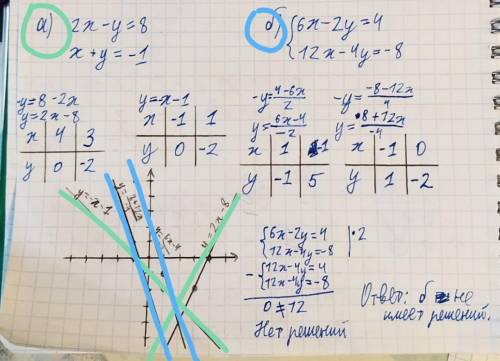 а) 2x-y=8
x+y=-1
б) {6x-2y=4
{12x-4y=-8
-y=8-2x
y=2x-8
x | 4 | 3
y | 0 | -2
y=-x-1
x | -1 | 1
y | 0 | -2
-y=\frac{4-6x}{2}
y=\frac{6x-4}{-2}
x | 1 | -1
y | -1 | 5
-y=\frac{-8-12x}{4}
y=\frac{8+12x}{-4}
x | -1 | 0
y | 1 | -2
y=-x-1
y=2x-8
{6x-2y=4 | •2
{12x-4y=-8
- {12x-4y=4
{12x-4y=-8
0≠12
Нет решений
Ответ: б не
имеет решений.